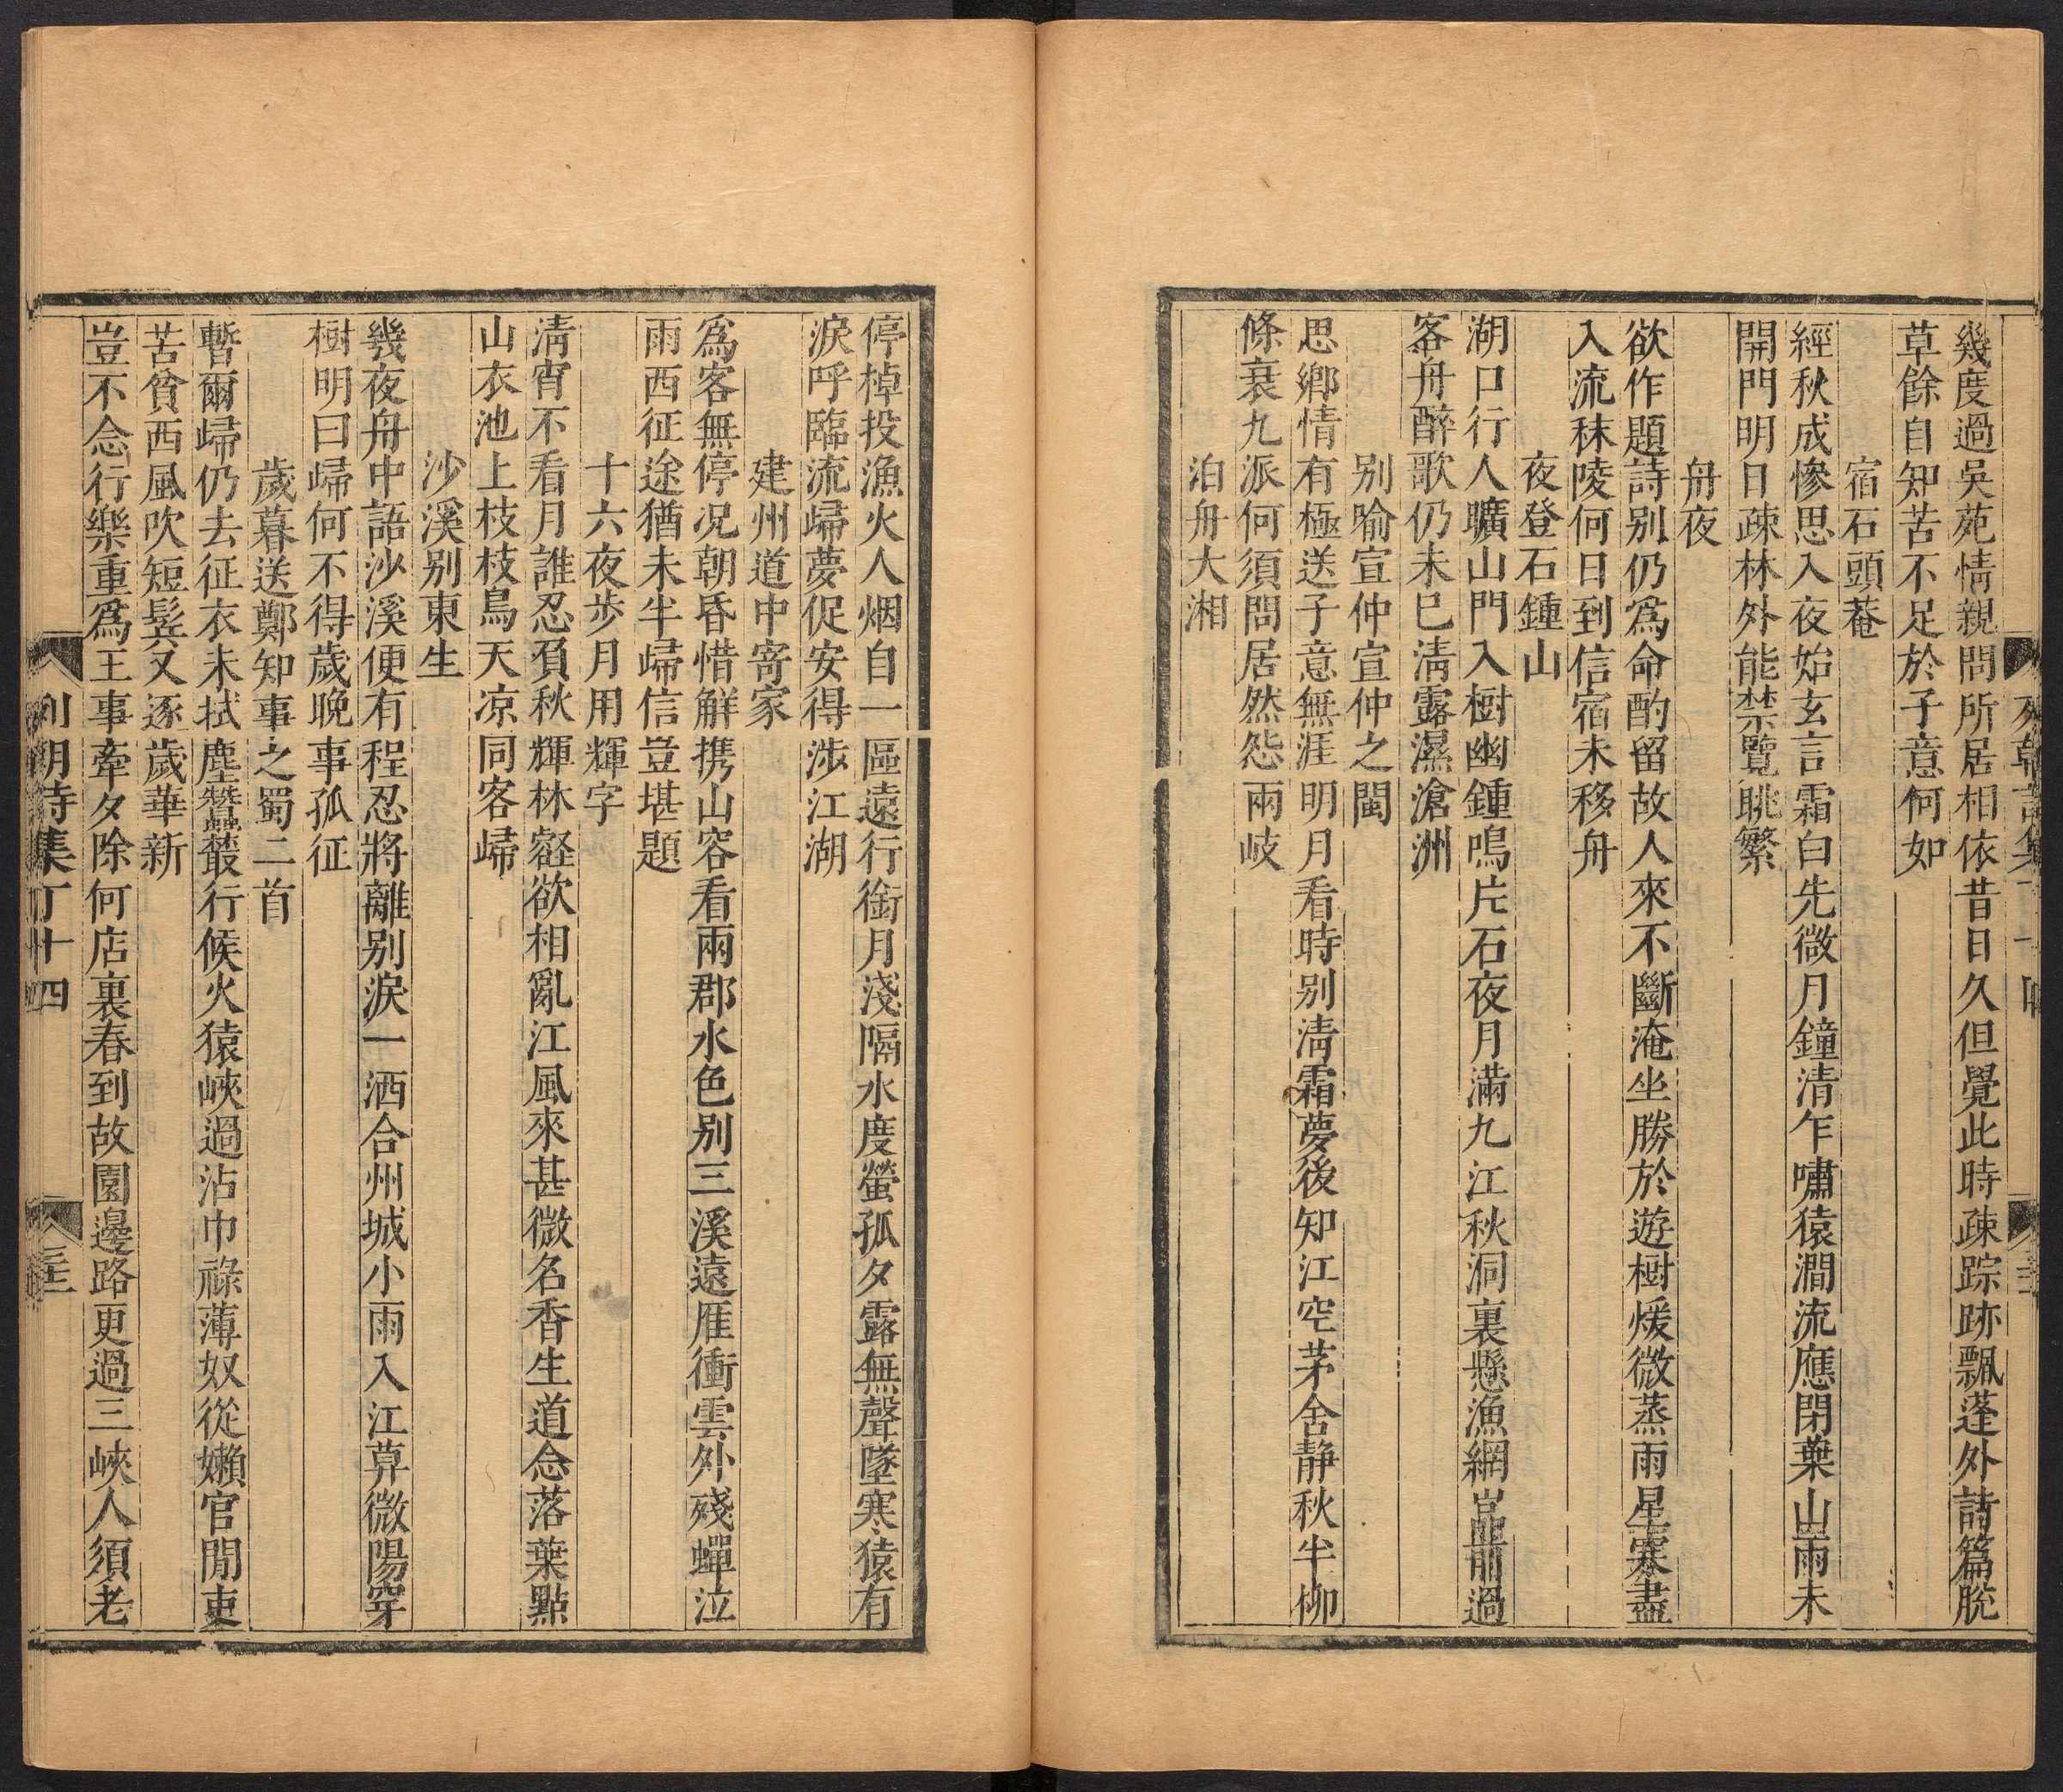 幾度過吳苑情親問所居相依昔日久但覺此時疎踪跡飄蓬外詩篇脫
草餘自知苦不足於子意何如
宿石頭菴
經秋成慘思入夜始玄言霜白先微月鐘清乍嘯猿澗流應閉葉山雨未
開門明日疎林外能禁覽眺繁
舟夜
欲作題詩别仍爲命酌留故人來不斷淹坐勝於遊樹煖微蒸雨星寒盡
入流秣陵何日到信宿未移舟
夜登石鍾山
湖口行人曠山門入樹幽鍾鳴片石夜月滿九江秋洞裏懸漁網岩前過
客舟醉歌仍未已淸露濕滄洲
别喻宣仲宣仲之閩
思鄉情有極送子意無涯明月看時别淸霜夢後知江空茅舍静秋半柳
條衰九派何須問居然怨兩岐
泊舟大湘
停棹投漁火人烟自一區遠行銜月淺隔水度螢孤夕露無聲墜寒猿有
淚呼臨流歸夢促安得涉江湖
建州道中寄家
爲客無停况朝昏惜解携山容看兩郡水色别三溪遠雁衝雲外殘蟬泣
雨西征途猶未半歸信豈堪題
十六夜步月用輝字
淸宵不看月誰忍負秋輝林壑欲相亂江風來甚微名香生道念落葉點
山衣池上枝枝鳥天凉同客歸
沙溪别東生
幾夜舟中語沙溪便有程忍將離别淚一洒合州城小雨入江葬微陽穿
樹明曰歸何不得歲晚事孤征
歲暮送鄭知事之蜀二首
暫爾歸仍去征衣未拭塵蠶叢行候火猿峽過沾巾祿薄奴從嬾官閒吏
苦貧西風吹短鬂又逐歲華新
豈不念行樂重爲王事牽夕除何店裏春到故園邊路更過三峽人須老
列朝詩集丁十四